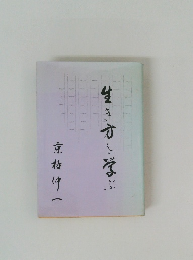 生き方を学ぶ
京極伸一